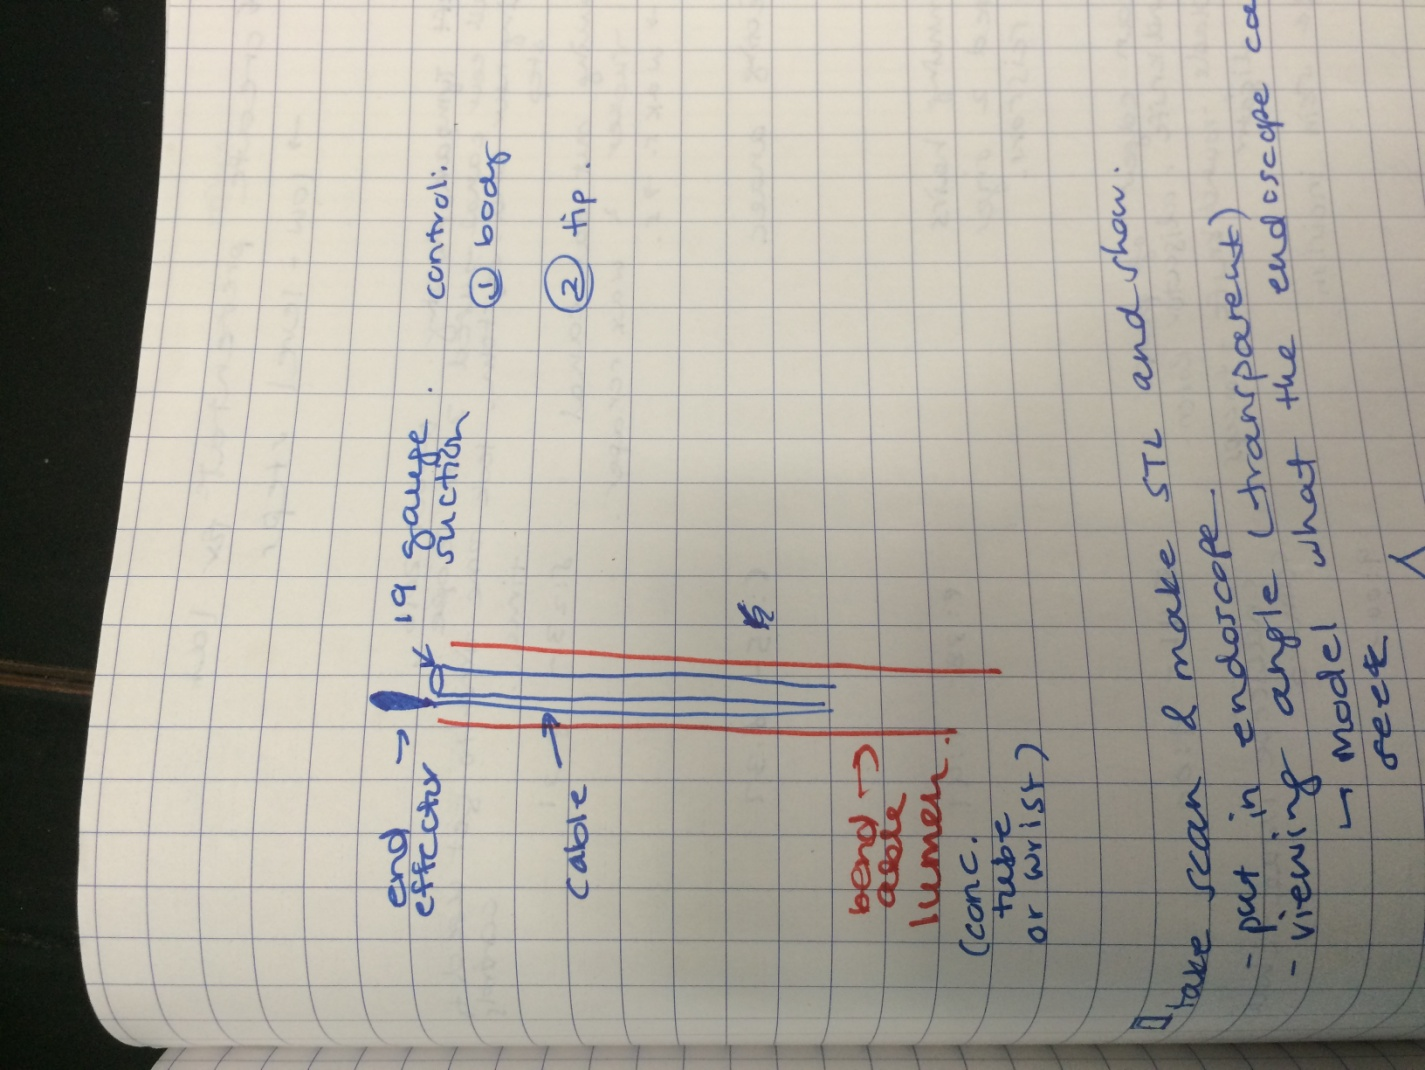 19 gauge
suction
control:
① body
② tip.
end →
effector
cable →
bend →
able
lumen.
(conc.
tube
or wrist)
take scan & make STL and show.
- put in endoscope
- viewing angle (transparent)
↳ model what the endoscope
sees